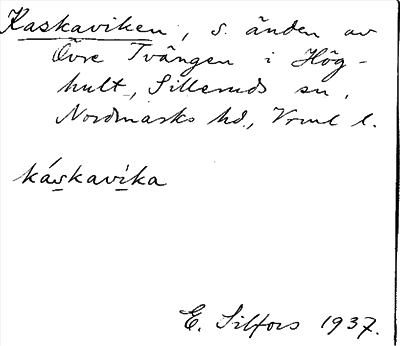 Kaskaviken, s. änden av
Övre Tvången i Hög-
hult, Silleruds sn,
Nordmarks hd., Vrml l.
káskavíka
E. Silfors 1937.